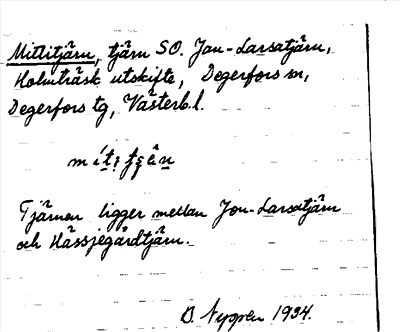 Mittitjärn, tjärn SO. Jon-Larsatjärn,
Holmträsk utskifte, Degerfors sn,
Degerfors tg, Västerb. l.
Tjärnen ligger mellan Jon-Larsatjärn
och Hässjegårdtjärn.
O. Nygren 1934.